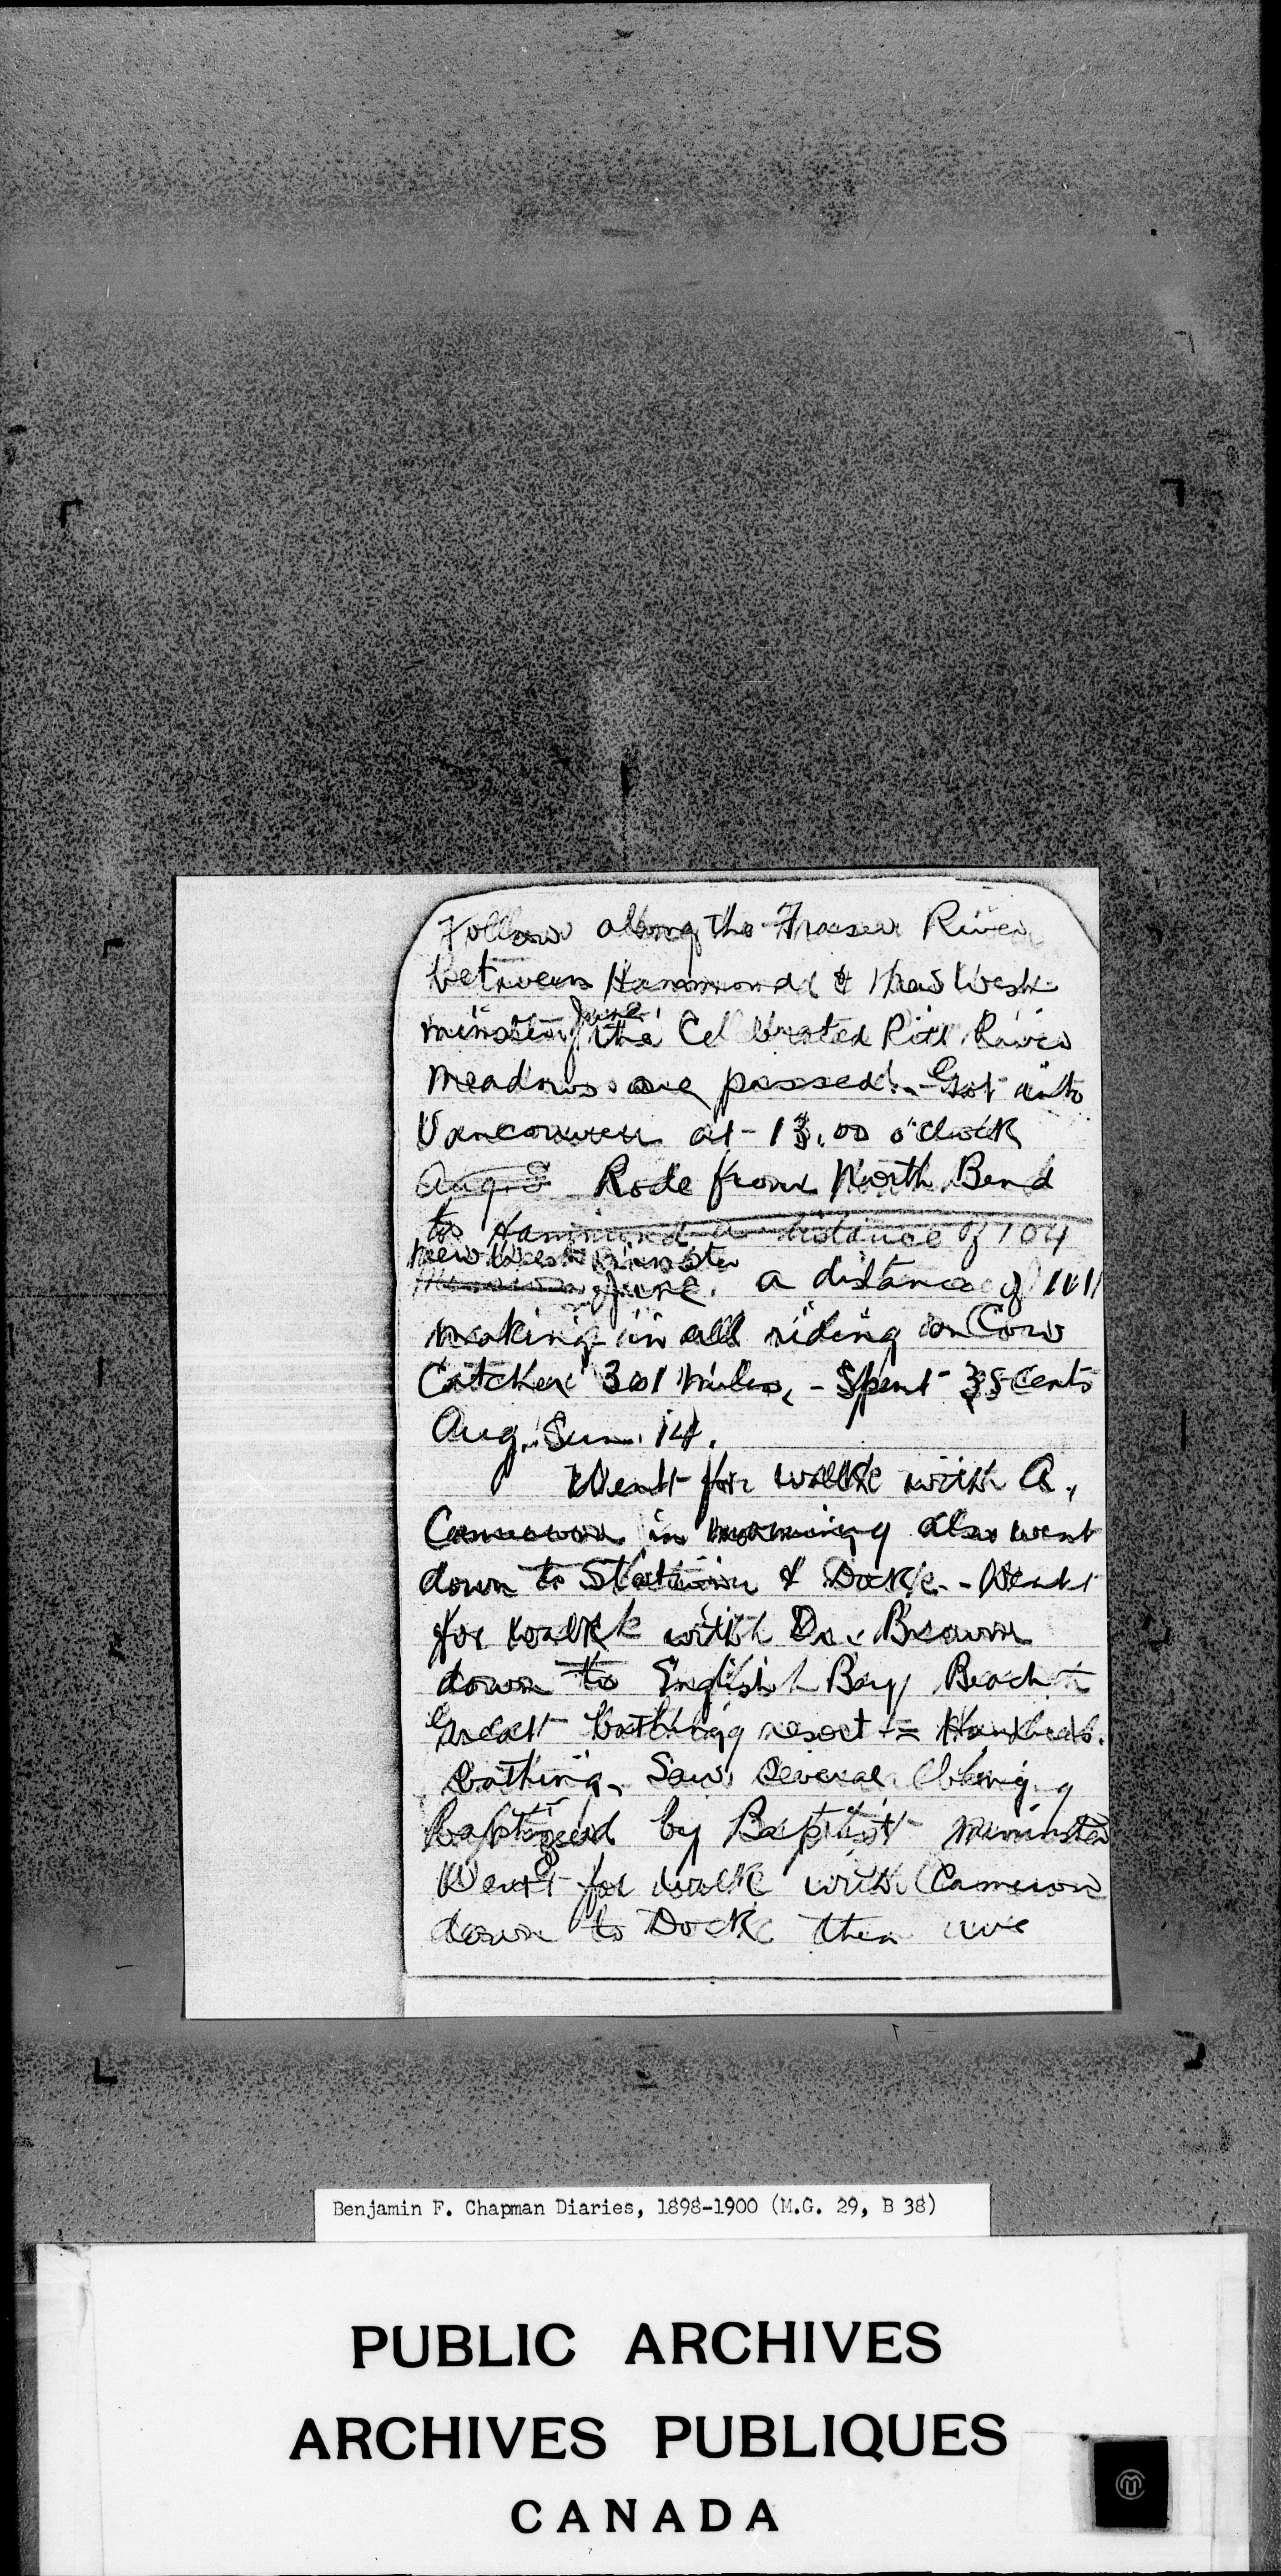 Follow along the Fraser River
between Hammond & New West-
minster June. the Celebrated Pitt River
Meadows are passed. - Got into
Vancouver at - 13.00 o'clock
Aug. Rode from North Bend
to Hammond a distance of 104
New Westminster
June. a distance of 101
making in all riding on Cow
Catcher 301 miles, - Spent 35 cents
Aug. Sun. 14.
Went for walk with A.
Cameron in morning also went
down to Station & Dock. - Went
for walk with Dr. Brown
down to English Bay Beach
Great bathing resort = Hundreds
bathing. Saw several being
baptised by Baptist minister
Went for walk with Cameron
down to Dock then we
Benjamin F. Chapman Diaries, 1898-1900 (M.G. 29, B 38)
PUBLIC ARCHIVES
ARCHIVES PUBLIQUES
CANADA